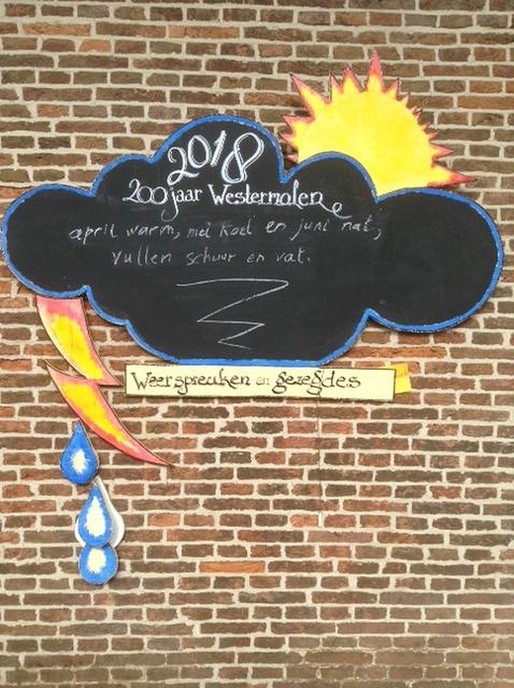 2018
200 jaar Westermolen
april warm, mei koel en juni nat,
vullen schuur en vat.
Weerspreuken en gezegdes